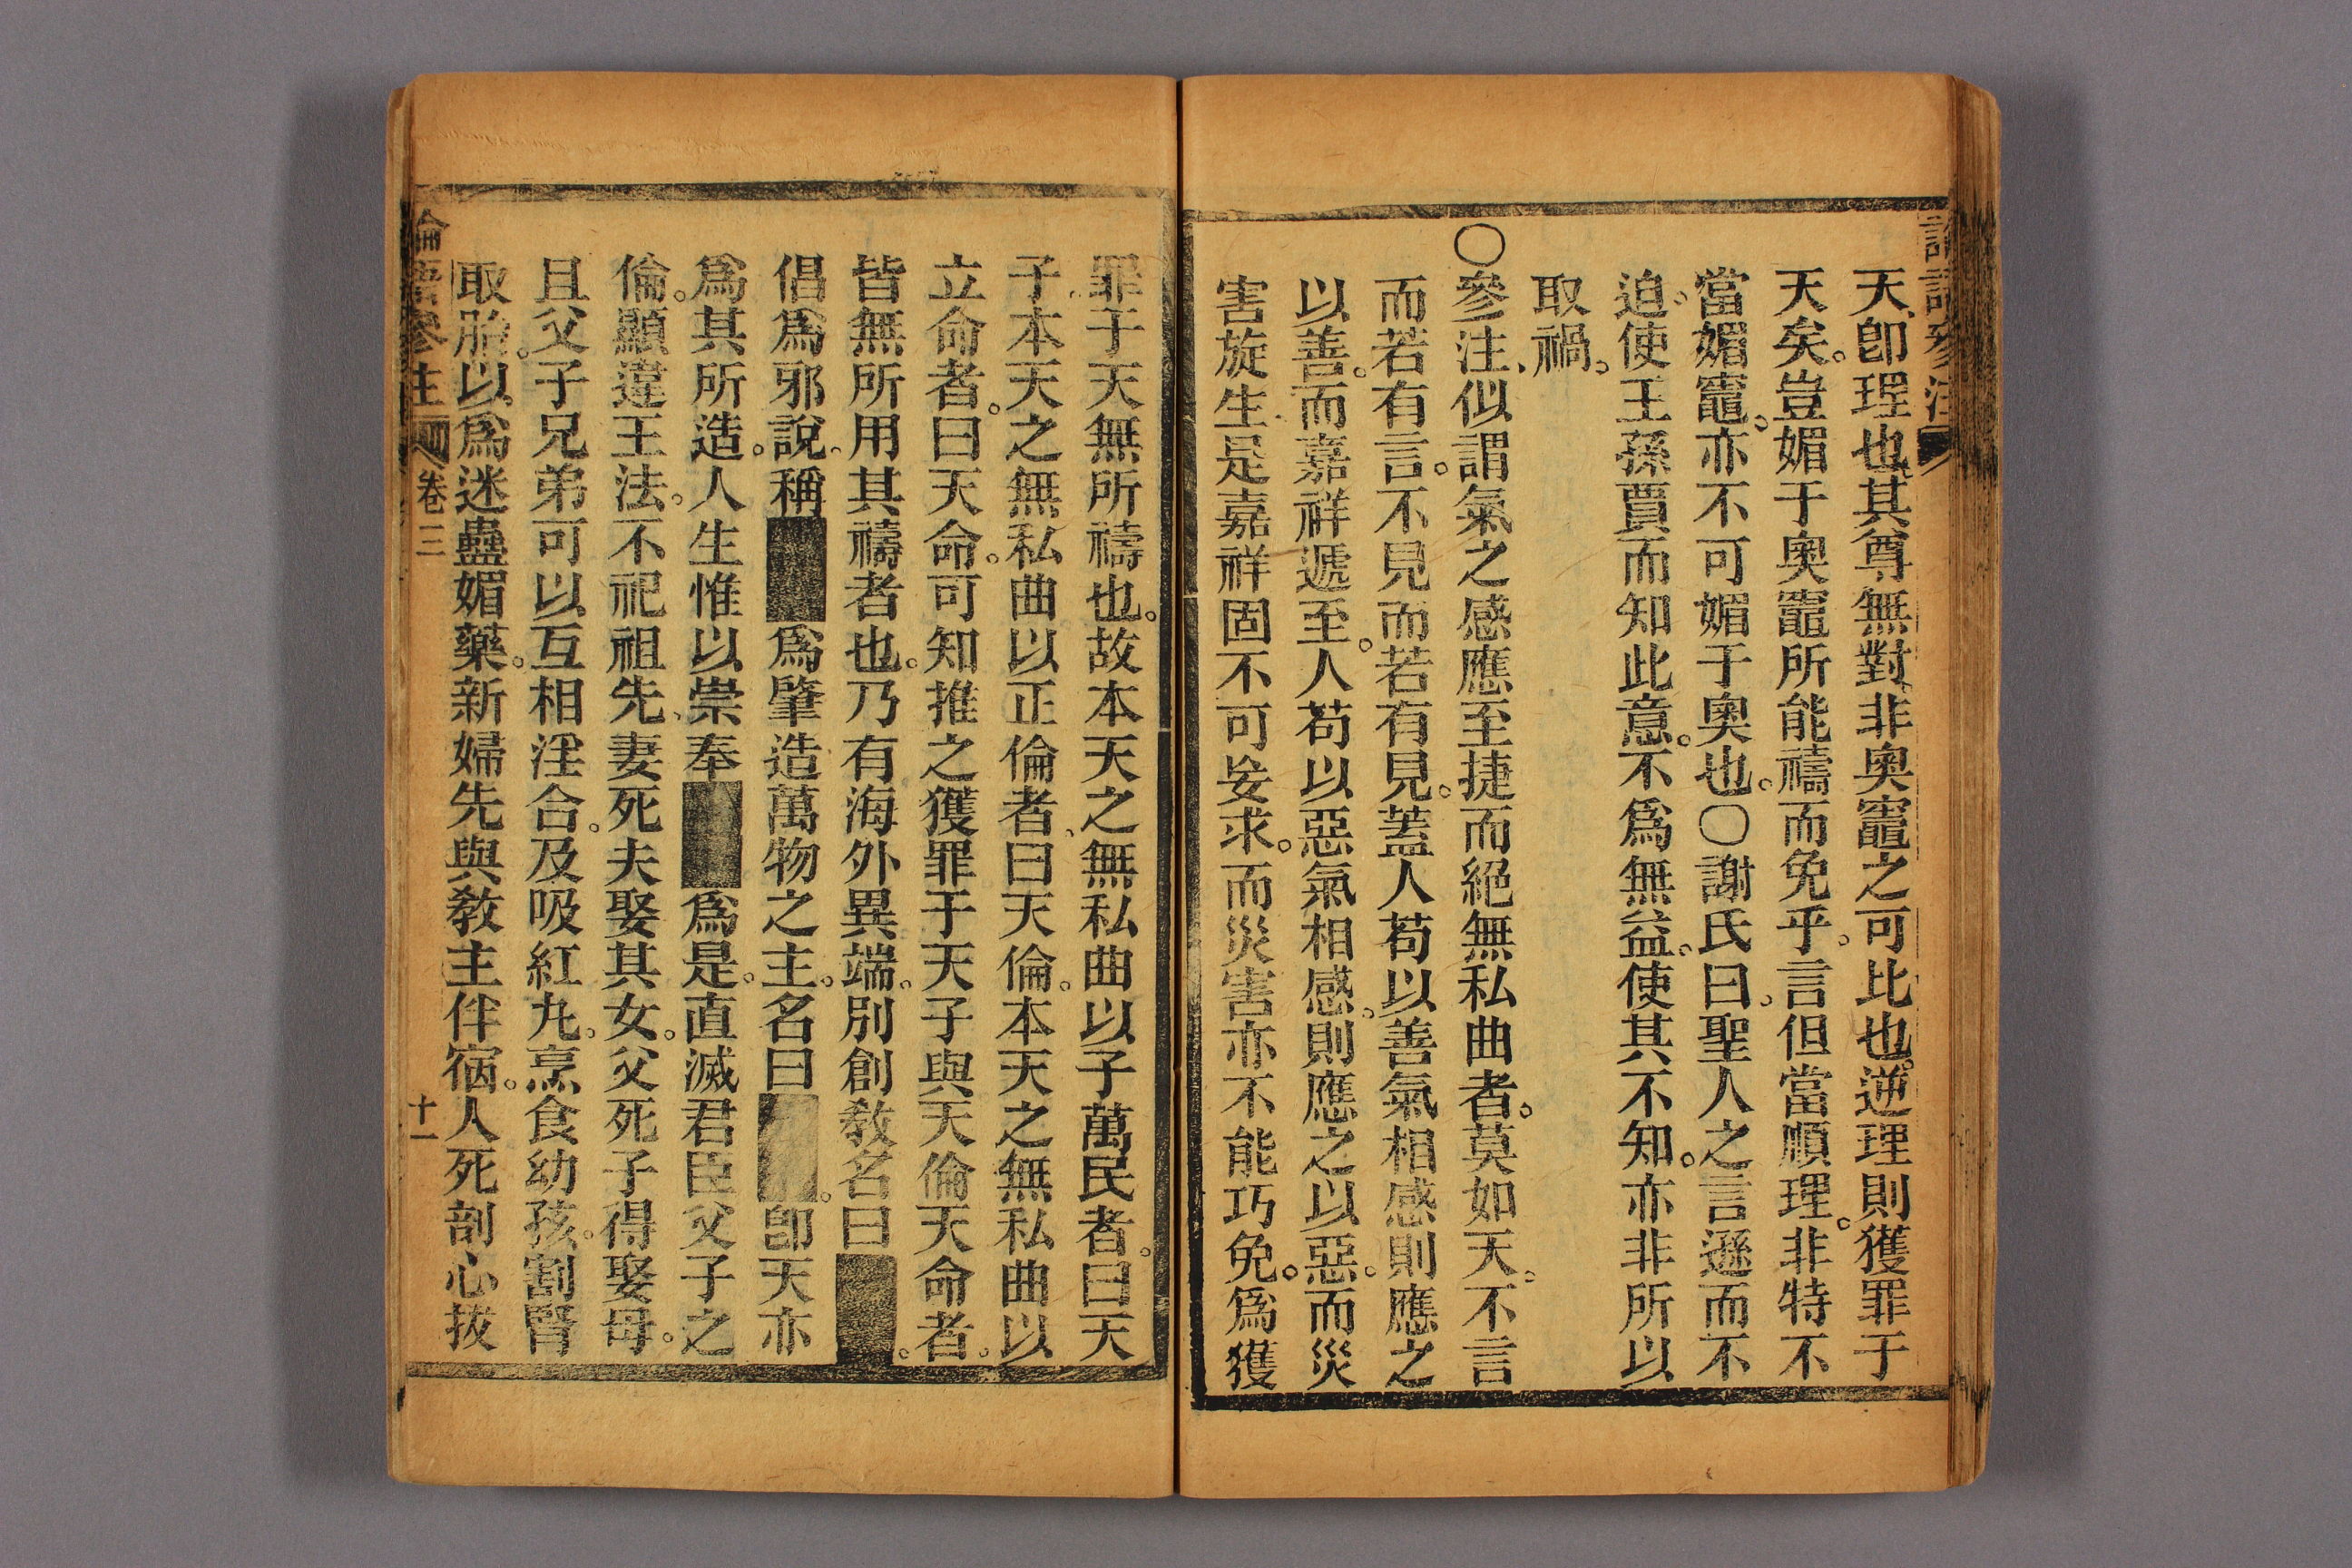 天即理也其尊無對非奧竈之可比也逆理則獲罪于
天矣。豈媚于奧竈所能禱而免乎。言但當順理。非特不
當媚竈。亦不可媚于奧也。○謝氏曰。聖人之言遜而不
迫。使王孫賈而知此意。不爲無益。使其不知。亦非所以
取禍。
○參注、似謂氣之感應至捷而絕無私曲者。莫如天。不言
而若有言。不見而若有見。蓋人苟以善氣相感則應之
以善。而嘉祥遞至。人苟以惡氣相感。則應之以惡。而災
害旋生。是嘉祥固不可妄求。而災害亦不能巧免。爲獲
罪于天無所禱也。故本天之無私曲以子萬民者。曰天
子。本天之無私曲以正倫者、曰天倫。本天之無私曲以
立命者。曰天命。可知推之獲罪于天子與天倫天命者。
皆無所用其禱者也。乃有海外異端。別創教名曰。
倡爲邪說。稱爲肇造萬物之主。名曰。即天亦
爲其所造。人生惟以崇奉爲是。直滅君臣父子之
倫。顯違王法。不祀祖先、妻死夫娶其女。父死子得娶母。
且父子兄弟可以互相淫合。及吸紅丸。烹食幼孩。割腎
取胎。以爲迷蠱媚藥。新婦先與教主伴宿。人死剖心拔
論語參注
卷三
十一